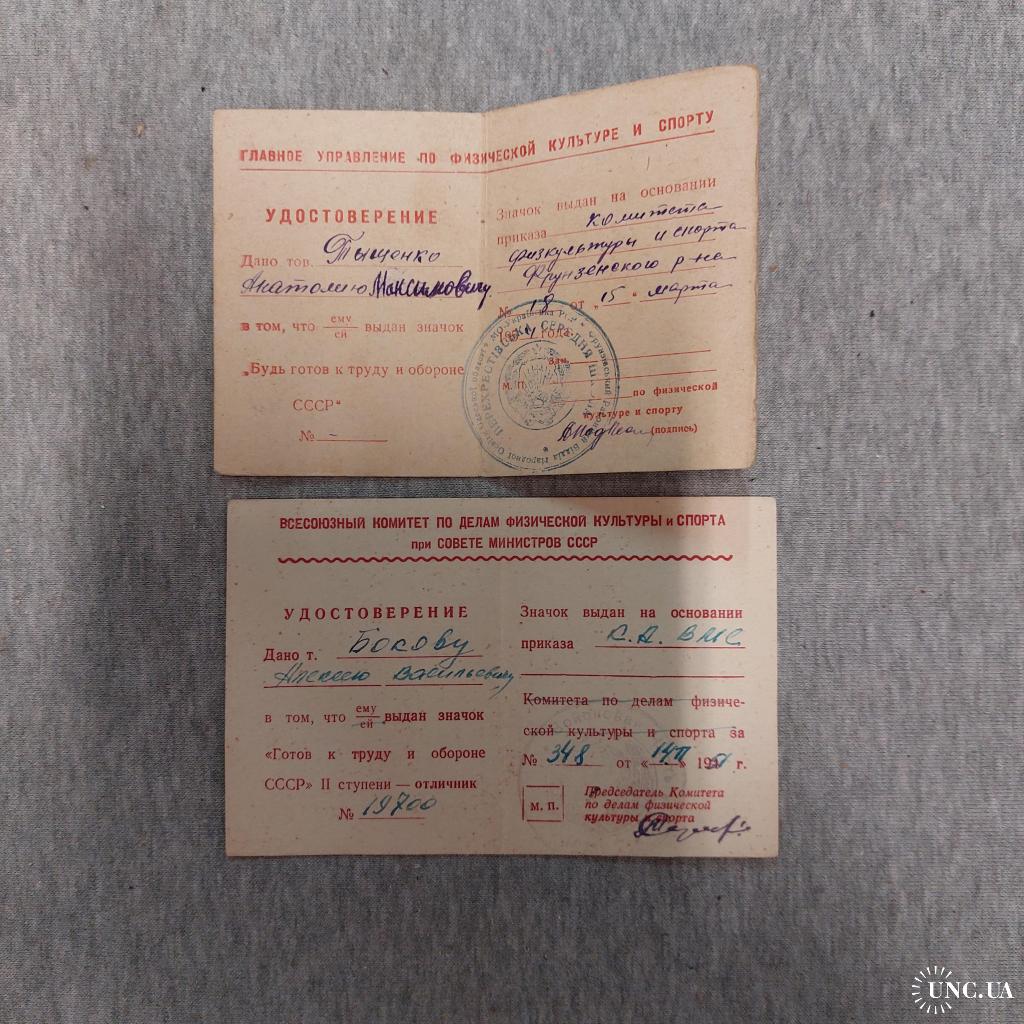 ГЛАВНОЕ УПРАВЛЕНИЕ ПО ФИЗИЧЕСКОЙ КУЛЬТУРЕ И СПОРТУ
УДОСТОВЕРЕНИЕ
Дано тов. Тыщенко
Анатолию Максимовичу
в том, что ему/ей выдан значок
„Будь готов к труду и обороне
СССР“
№ -
Значок выдан на основании
приказа комитета
физкультуры и спорта
Фрунзенского р-на
№ 18 от „15“ марта
года
Зам.
М. П.
по физической
культуре и спорту
(подпись)
ПЕРЕХРЕСТІВСЬКА СЕРЕДНЯ
ВСЕСОЮЗНЫЙ КОМИТЕТ ПО ДЕЛАМ ФИЗИЧЕСКОЙ КУЛЬТУРЫ и СПОРТА
при СОВЕТЕ МИНИСТРОВ СССР
УДОСТОВЕРЕНИЕ
Дано т. Бокову
Алексею Васильевичу
в том, что ему/ей выдан значок
«Готов к труду и обороне
СССР» II ступени — отличник
№ 19700
Значок выдан на основании
приказа К.А. ВМС
Комитета по делам физиче-
ской культуры и спорта за
№ 348 от «14/II» 195 г.
М. П.
Председатель Комитета
по делам физической
культуры и спорта
UNC.UA